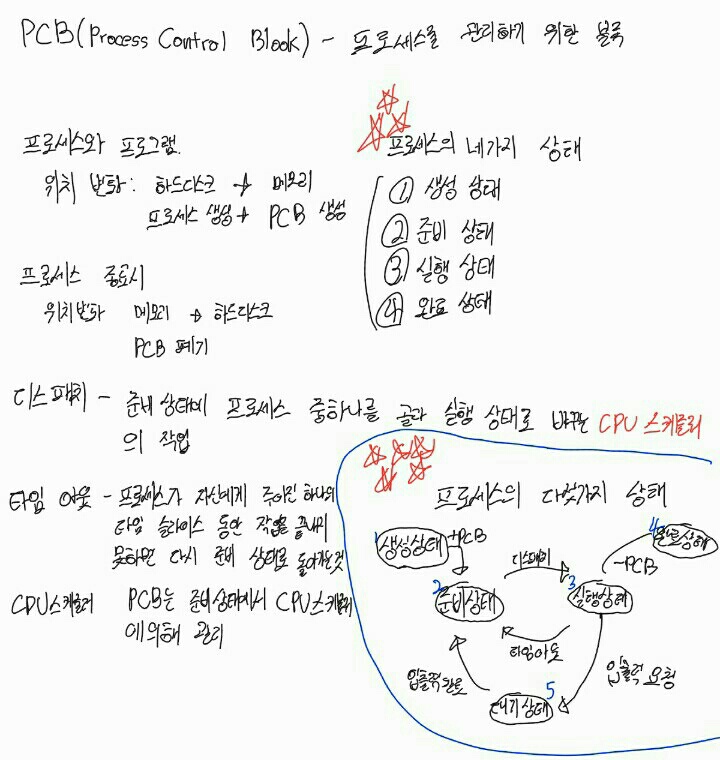 PCB(Process Control Block) - 프로세스를 관리하기 위한 블록
프로세스와 프로그램.
위치 변화: 하드디스크 → 메모리
프로세스 생성 + PCB 생성
프로세스 종료시
위치변화 메모리 → 하드디스크
PCB 폐기
프로세스의 네가지 상태
① 생성 상태
② 준비 상태
③ 실행 상태
④ 완료 상태
디스패치 - 준비 상태에 프로세스 중하나를 골라 실행 상태로 바꾸는 CPU 스케줄러
의 작업
타임 아웃 - 프로세스가 자신에게 주어진 하나의
타임 슬라이스 동안 작업을 끝내지
못하면 다시 준비 상태로 돌아가는것
CPU스케줄러 PCB는 준비상태에서 CPU스케줄러
에의해 관리
프로세스의 다섯가지 상태
1 생성상태 +PCB
2 준비상태
디스패치
3 실행상태
4 완료상태
-PCB
타임아웃
입출력완료
입출력 요청
5 대기상태